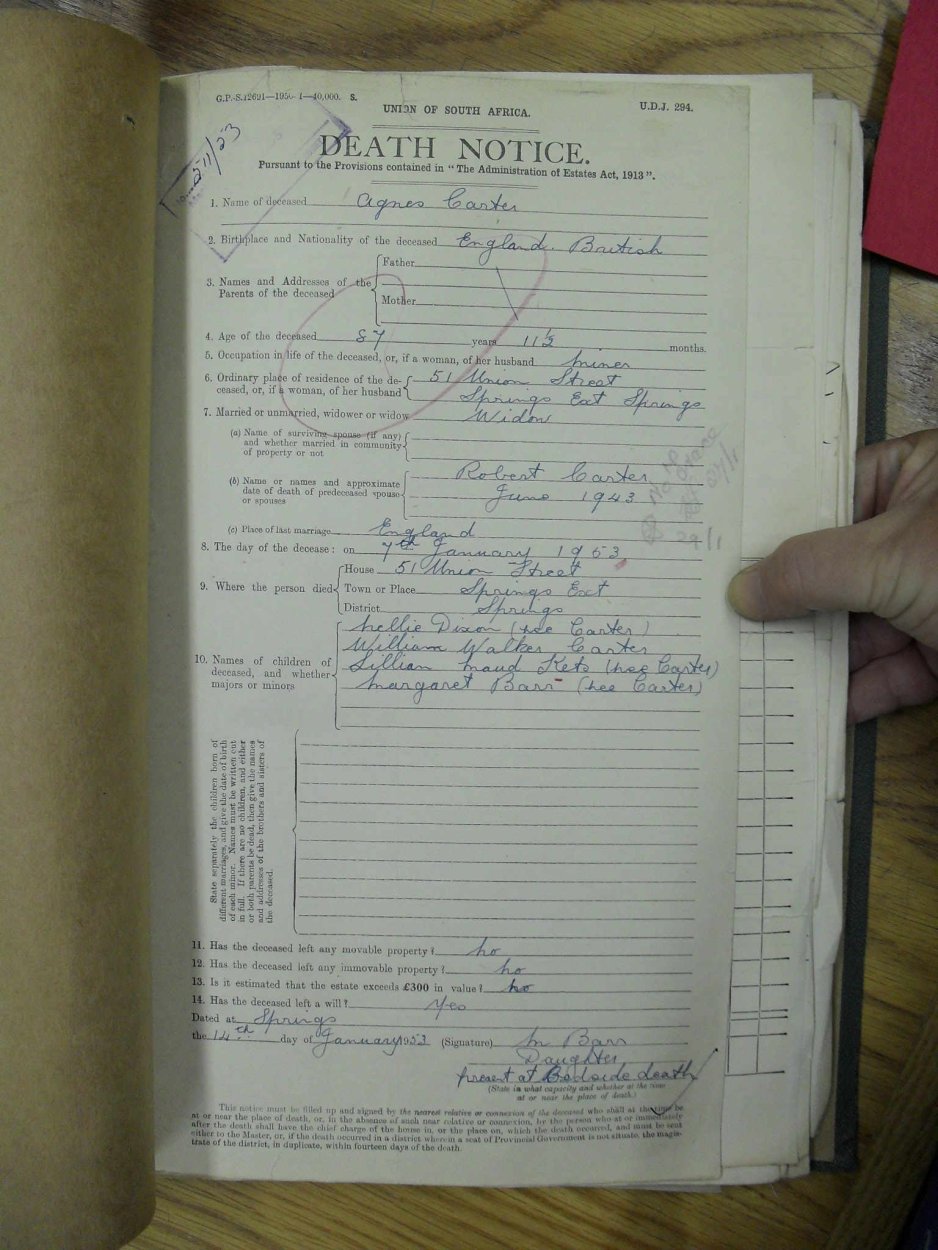 G.P.-S.12691—1950-1—40,000. S.
UNION OF SOUTH AFRICA.
U.D.J. 294.
DEATH NOTICE.
Pursuant to the Provisions contained in "The Administration of Estates Act, 1913".
1. Name of deceased Agnes Carter
2. Birthplace and Nationality of the deceased England. British
3. Names and Addresses of the Parents of the deceased
Father
Mother
4. Age of the deceased 87 years 11½ months.
5. Occupation in life of the deceased, or, if a woman, of her husband miner
6. Ordinary place of residence of the de- 51 Union Street
ceased, or, if a woman, of her husband Springs Ext Springs
7. Married or unmarried, widower or widow Widow
(a) Name of surviving spouse (if any)
and whether married in community
of property or not
(b) Name or names and approximate Robert Carter
date of death of predeceased spouse June 1943
or spouses
(c) Place of last marriage England
8. The day of the decease: on 7th January 1953
9. Where the person died
House 51 Union Street
Town or Place Springs Ext
District Springs
10. Names of children of
deceased, and whether
majors or minors
Nellie Dixon (nee Carter)
William Walker Carter
Lillian Maud (nee Carter)
Margaret Barr (nee Carter)
State separately the children born of
different marriages, and give the date of birth
of each minor. Names must be written out
in full. If there are no children, and either
or both parents be dead, then give the names
and addresses of the brothers and sisters of
the deceased.
11. Has the deceased left any movable property? no
12. Has the deceased left any immovable property? no
13. Is it estimated that the estate exceeds £300 in value? no
14. Has the deceased left a will? Yes
Dated at Springs
the 14th day of January 1953 (Signature) M Barr
Daughter
present at Bedside death
(State in what capacity and whether at the time
at or near the place of death.)
This notice must be filled up and signed by the nearest relative or connexion of the deceased who shall at the time be
at or near the place of death, or, in the absence of such near relative or connexion, by the person who at or immediately
after the death shall have the chief charge of the house in, or the place on, which the death occurred, and must be sent
either to the Master, or, if the death occurred in a district wherein a seat of Provincial Government is not situate, the magis-
trate of the district, in duplicate, within fourteen days of the death.